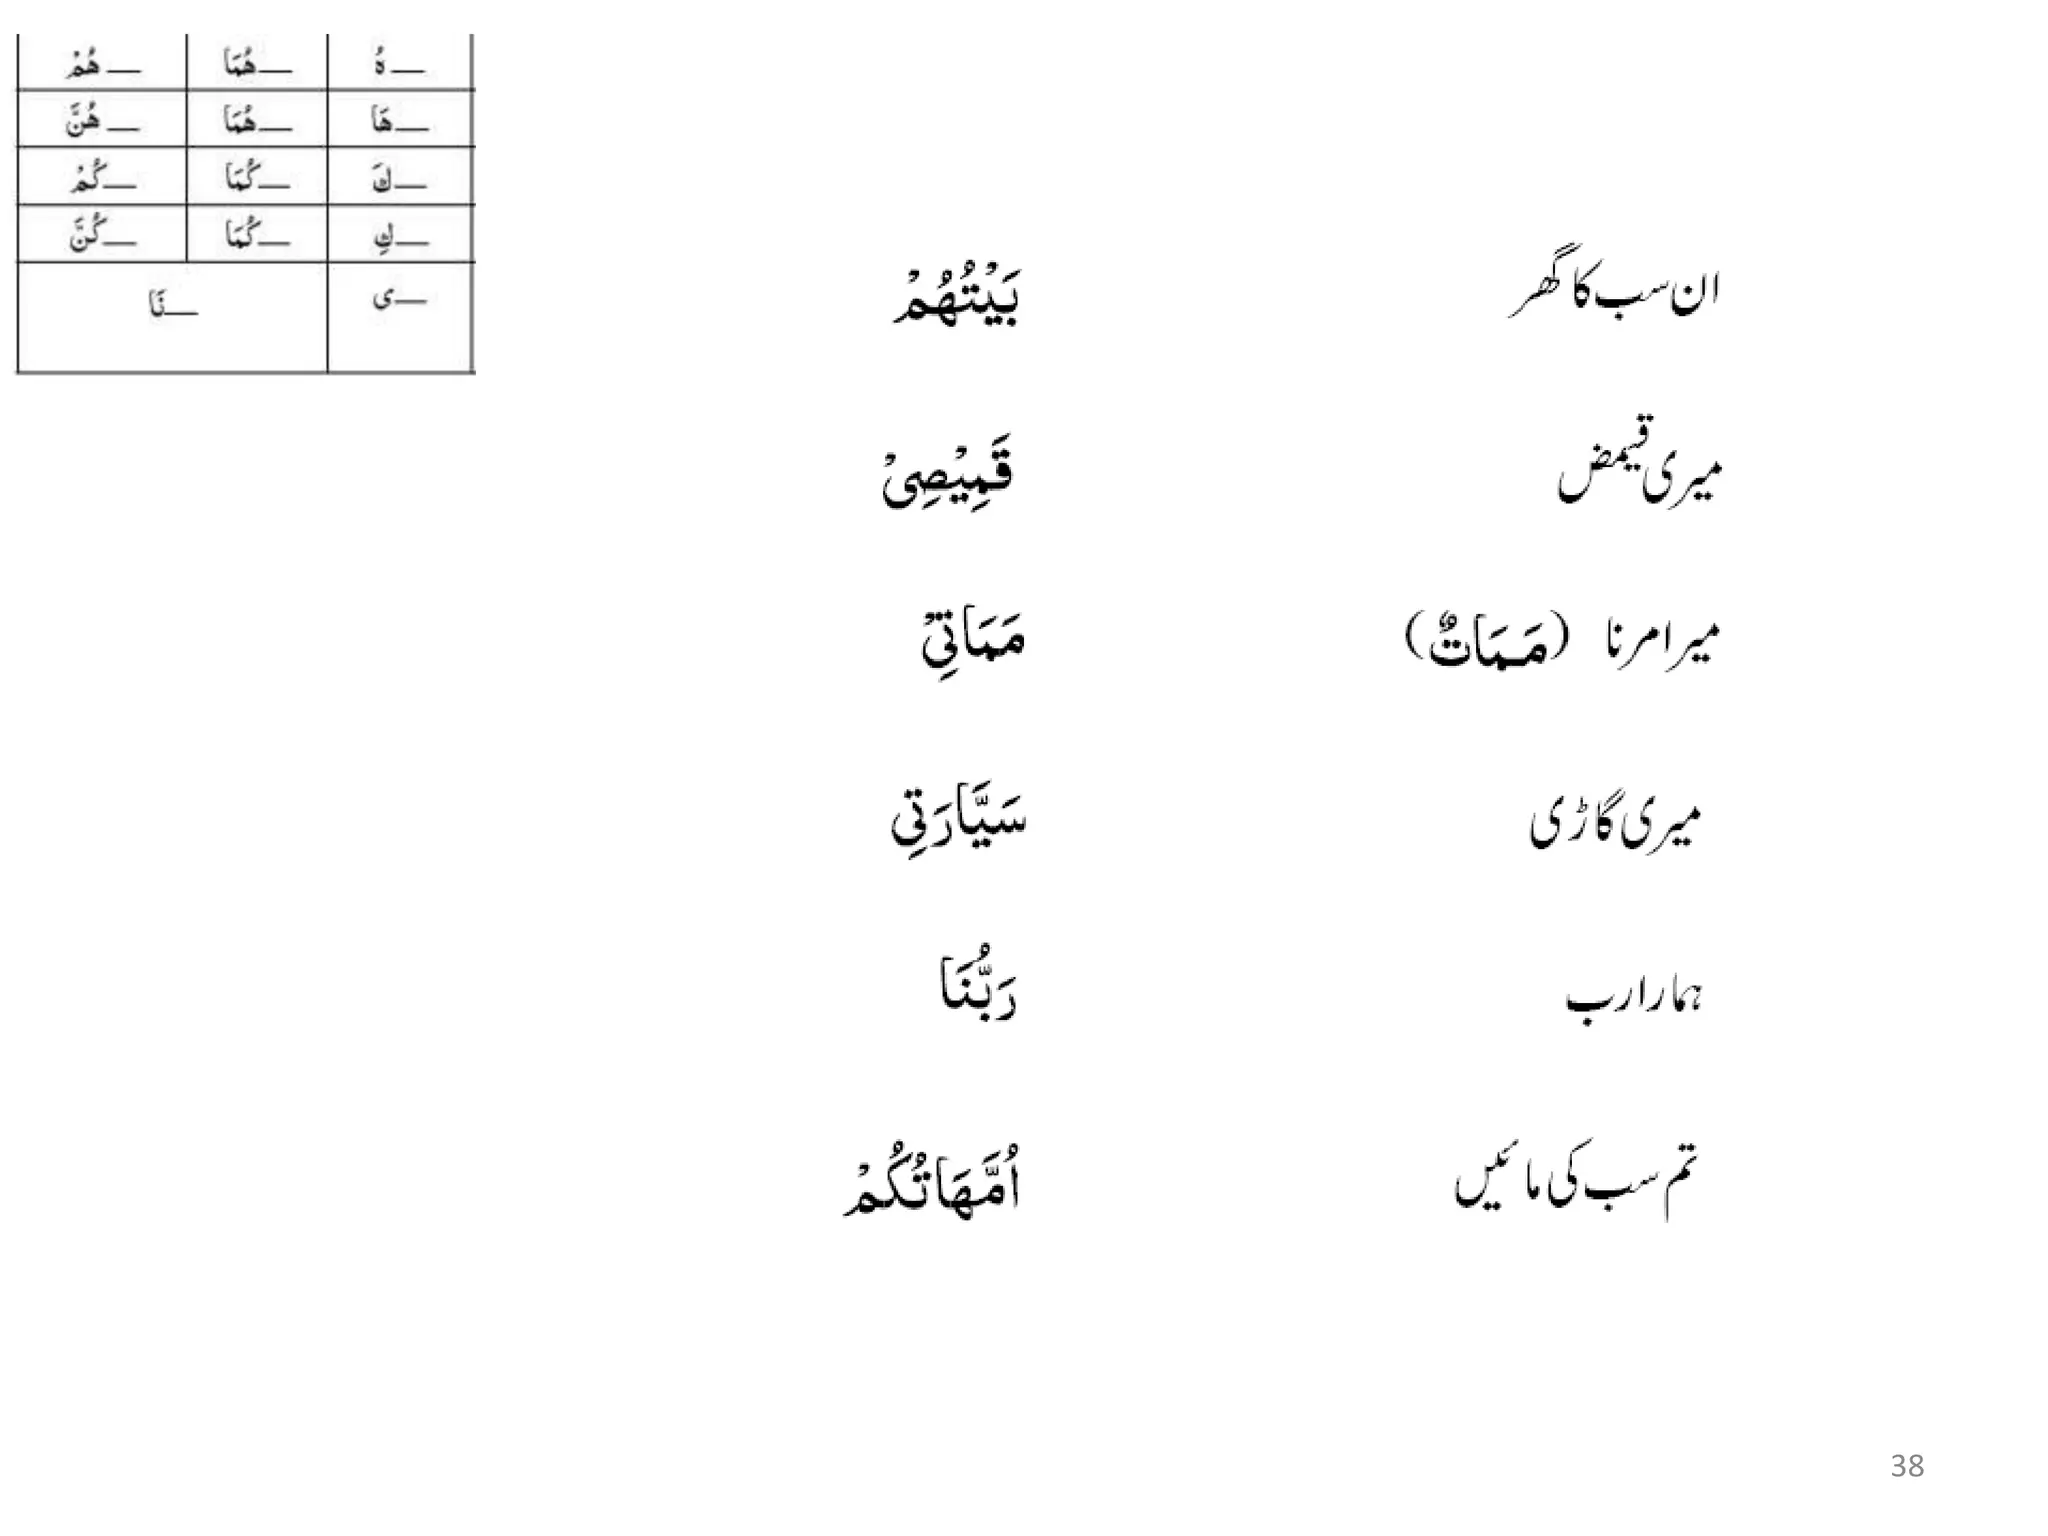 ـــهُ ـــهُمَا ـــهُمْ
ـــهَا ـــهُمَا ـــهُنَّ
ـــكَ ـــكُمَا ـــكُمْ
ـــكِ ـــكُمَا ـــكُنَّ
ـــی ـــنَا
ان سب کا گھر بَيْتُهُمْ
میری قیمض قَمِيْصِیْ
میرا مرنا (مَـمَاتٌ) مَمَاتِیْ
میری گاڑی سَيَّارَتِی
ہمارا رب رَبُّنَا
تم سب کی مائیں اُمَّهَاتُكُمْ
38